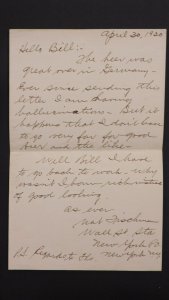 April 30, 1930
Hello Bill:-
The beer was
great over in Germany -
Ever since sending this
letter I am having
hallucinations - But it
happens that I don't have
to go very far for good
beer and the like -
Well Bill I have
to go back to work - why
wasn't I born rich instead
of good looking.
as ever
Nat
Wall St Sta
New York
P.S. Regards to the New York